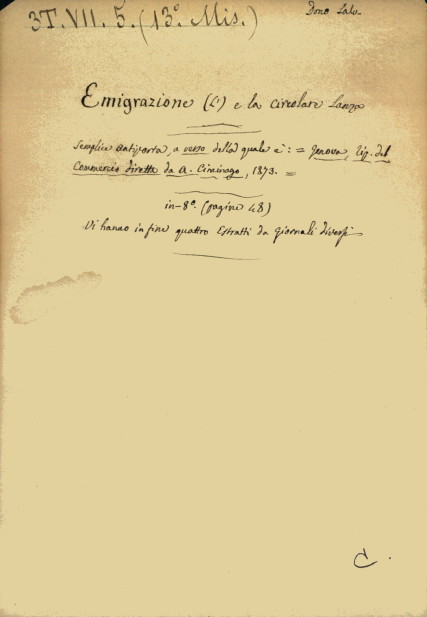 3T.VII.5.(13º Mis.)
Dono Salv.
Emigrazione (L') e la circolare Lanza
Semplice antiporta, a verso della quale è: = Genova, tip. del
Commercio diretta da A. Ciminago, 1873. =
in-8º. (pagine 48)
Vi hanno in fine quattro Estratti da giornali diversi
C.